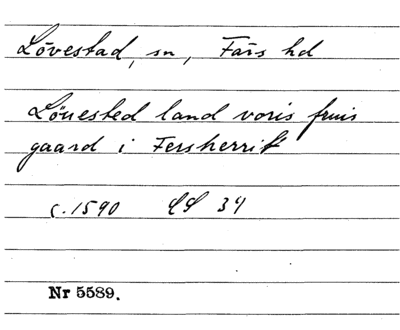 Lövestad, sn, Färs hd
Löuested land voris fruis
gaard i Fersherrit
c. 1590 LL 34
Nr 5589.